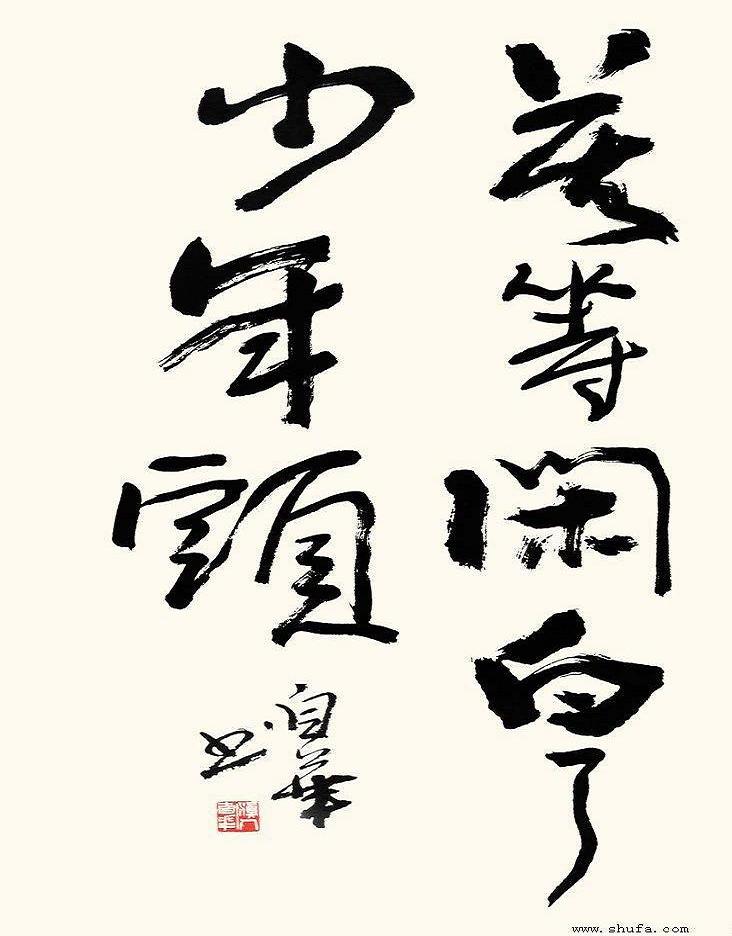 莫等閑白了
少年頭
自華
书
www.shufa.com